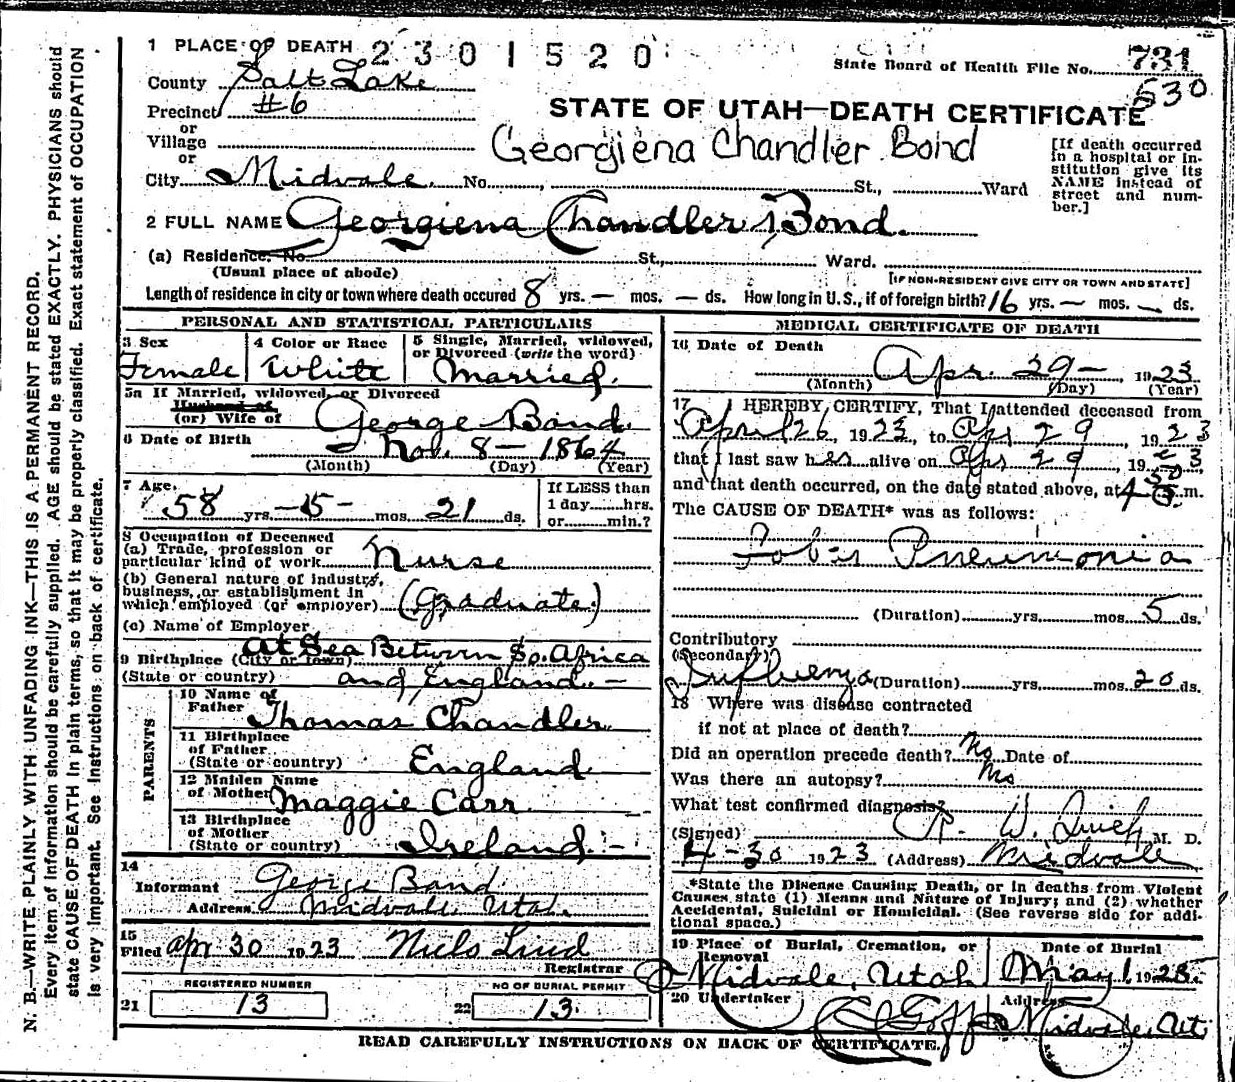 1 PLACE OF DEATH 2301520
State Board of Health File No. 731
530
County Salt Lake
Precinct #6
STATE OF UTAH—DEATH CERTIFICATE
or
Village
Georgiena Chandler Bond
or
City Midvale. No. , St., Ward
[If death occurred in a hospital or institution give its NAME instead of street and number.]
2 FULL NAME Georgiena Chandler Bond.
(a) Residence. No. St., Ward.
(Usual place of abode)
[IF NON-RESIDENT GIVE CITY OR TOWN AND STATE]
Length of residence in city or town where death occured 8 yrs. — mos. — ds. How long in U. S., if of foreign birth? 16 yrs. — mos. — ds.
PERSONAL AND STATISTICAL PARTICULARS
3 Sex
Female
4 Color or Race
White
5 Single, Married, widowed, or Divorced (write the word)
Married.
5a If Married, widowed, or Divorced
Husband of
(or) Wife of George Bond
6 Date of Birth Nov. 8 — 1864
(Month) (Day) (Year)
7 Age.
58 yrs. —5— mos. 21 ds.
If LESS than
1 day hrs.
or min.?
8 Occupation of Deceased
(a) Trade, profession or particular kind of work Nurse
(b) General nature of industry, business, or establishment in which employed (or employer) (Graduate)
(c) Name of Employer
At Sea Between So. Africa
9 Birthplace (City or town)
(State or country) and England. —
PARENTS
10 Name of Father Thomas Chandler
11 Birthplace of Father
(State or country) England
12 Maiden Name of Mother Maggie Carr
13 Birthplace of Mother
(State or country) Ireland. —
14
Informant George Bond
Address Midvale Utah.
15
Filed Apr 30 1923 Niels Lind
Registrar
REGISTERED NUMBER
21 13
NO OF BURIAL PERMIT
22 13
MEDICAL CERTIFICATE OF DEATH
16 Date of Death
Apr. 29 — 1923
(Month) (Day) (Year)
17 I HEREBY CERTIFY, That I attended deceased from
April 26, 1923, to Apr 29, 1923
that I last saw her alive on Apr 29, 1923
and that death occurred, on the date stated above, at m.
The CAUSE OF DEATH* was as follows:
Lobar Pneumonia
(Duration) yrs. mos. 5 ds.
Contributory
(Secondary)
Influenza (Duration) yrs. mos. 20 ds.
18 Where was disease contracted
if not at place of death?
Did an operation precede death? No Date of
Was there an autopsy? No
What test confirmed diagnosis?
(Signed) M. D.
4-30 1923 (Address) Midvale
*State the Disease Causing Death, or in deaths from Violent Causes, state (1) Means and Nature of Injury; and (2) whether Accidental, Suicidal or Homicidal. (See reverse side for additional space.)
19 Place of Burial, Cremation, or Removal
Midvale, Utah
Date of Burial
May 1, 1923
20 Undertaker
Goff
Address
Midvale, Ut
READ CAREFULLY INSTRUCTIONS ON BACK OF CERTIFICATE.
N. B.—WRITE PLAINLY WITH UNFADING INK—THIS IS A PERMANENT RECORD.
Every item of information should be carefully supplied. AGE should be stated EXACTLY. PHYSICIANS should
state CAUSE OF DEATH in plain terms, so that it may be properly classified. Exact statement of OCCUPATION
is very important. See instructions on back of certificate.